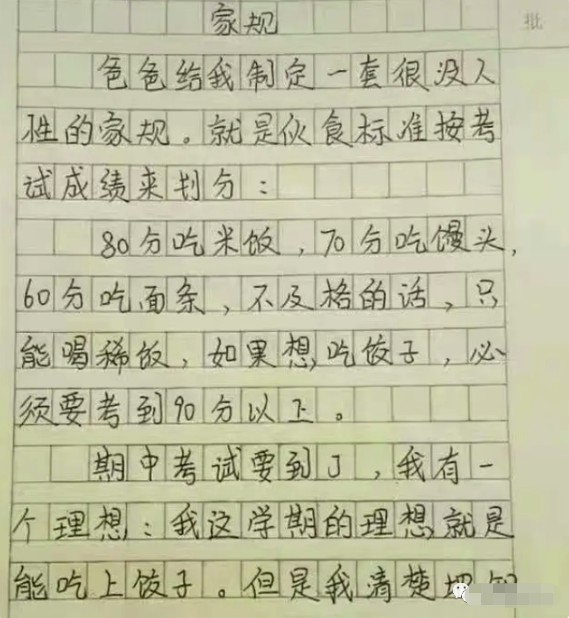 批
家规
爸爸给我制定一套很没人
性的家规。就是伙食标准按考
试成绩来划分：
80分吃米饭，70分吃馒头，
60分吃面条，不及格的话，只
能喝稀饭，如果想吃饺子，必
须要考到90分以上。
期中考试要到了，我有一
个理想：我这学期的理想就是
能吃上饺子。但是我清楚地